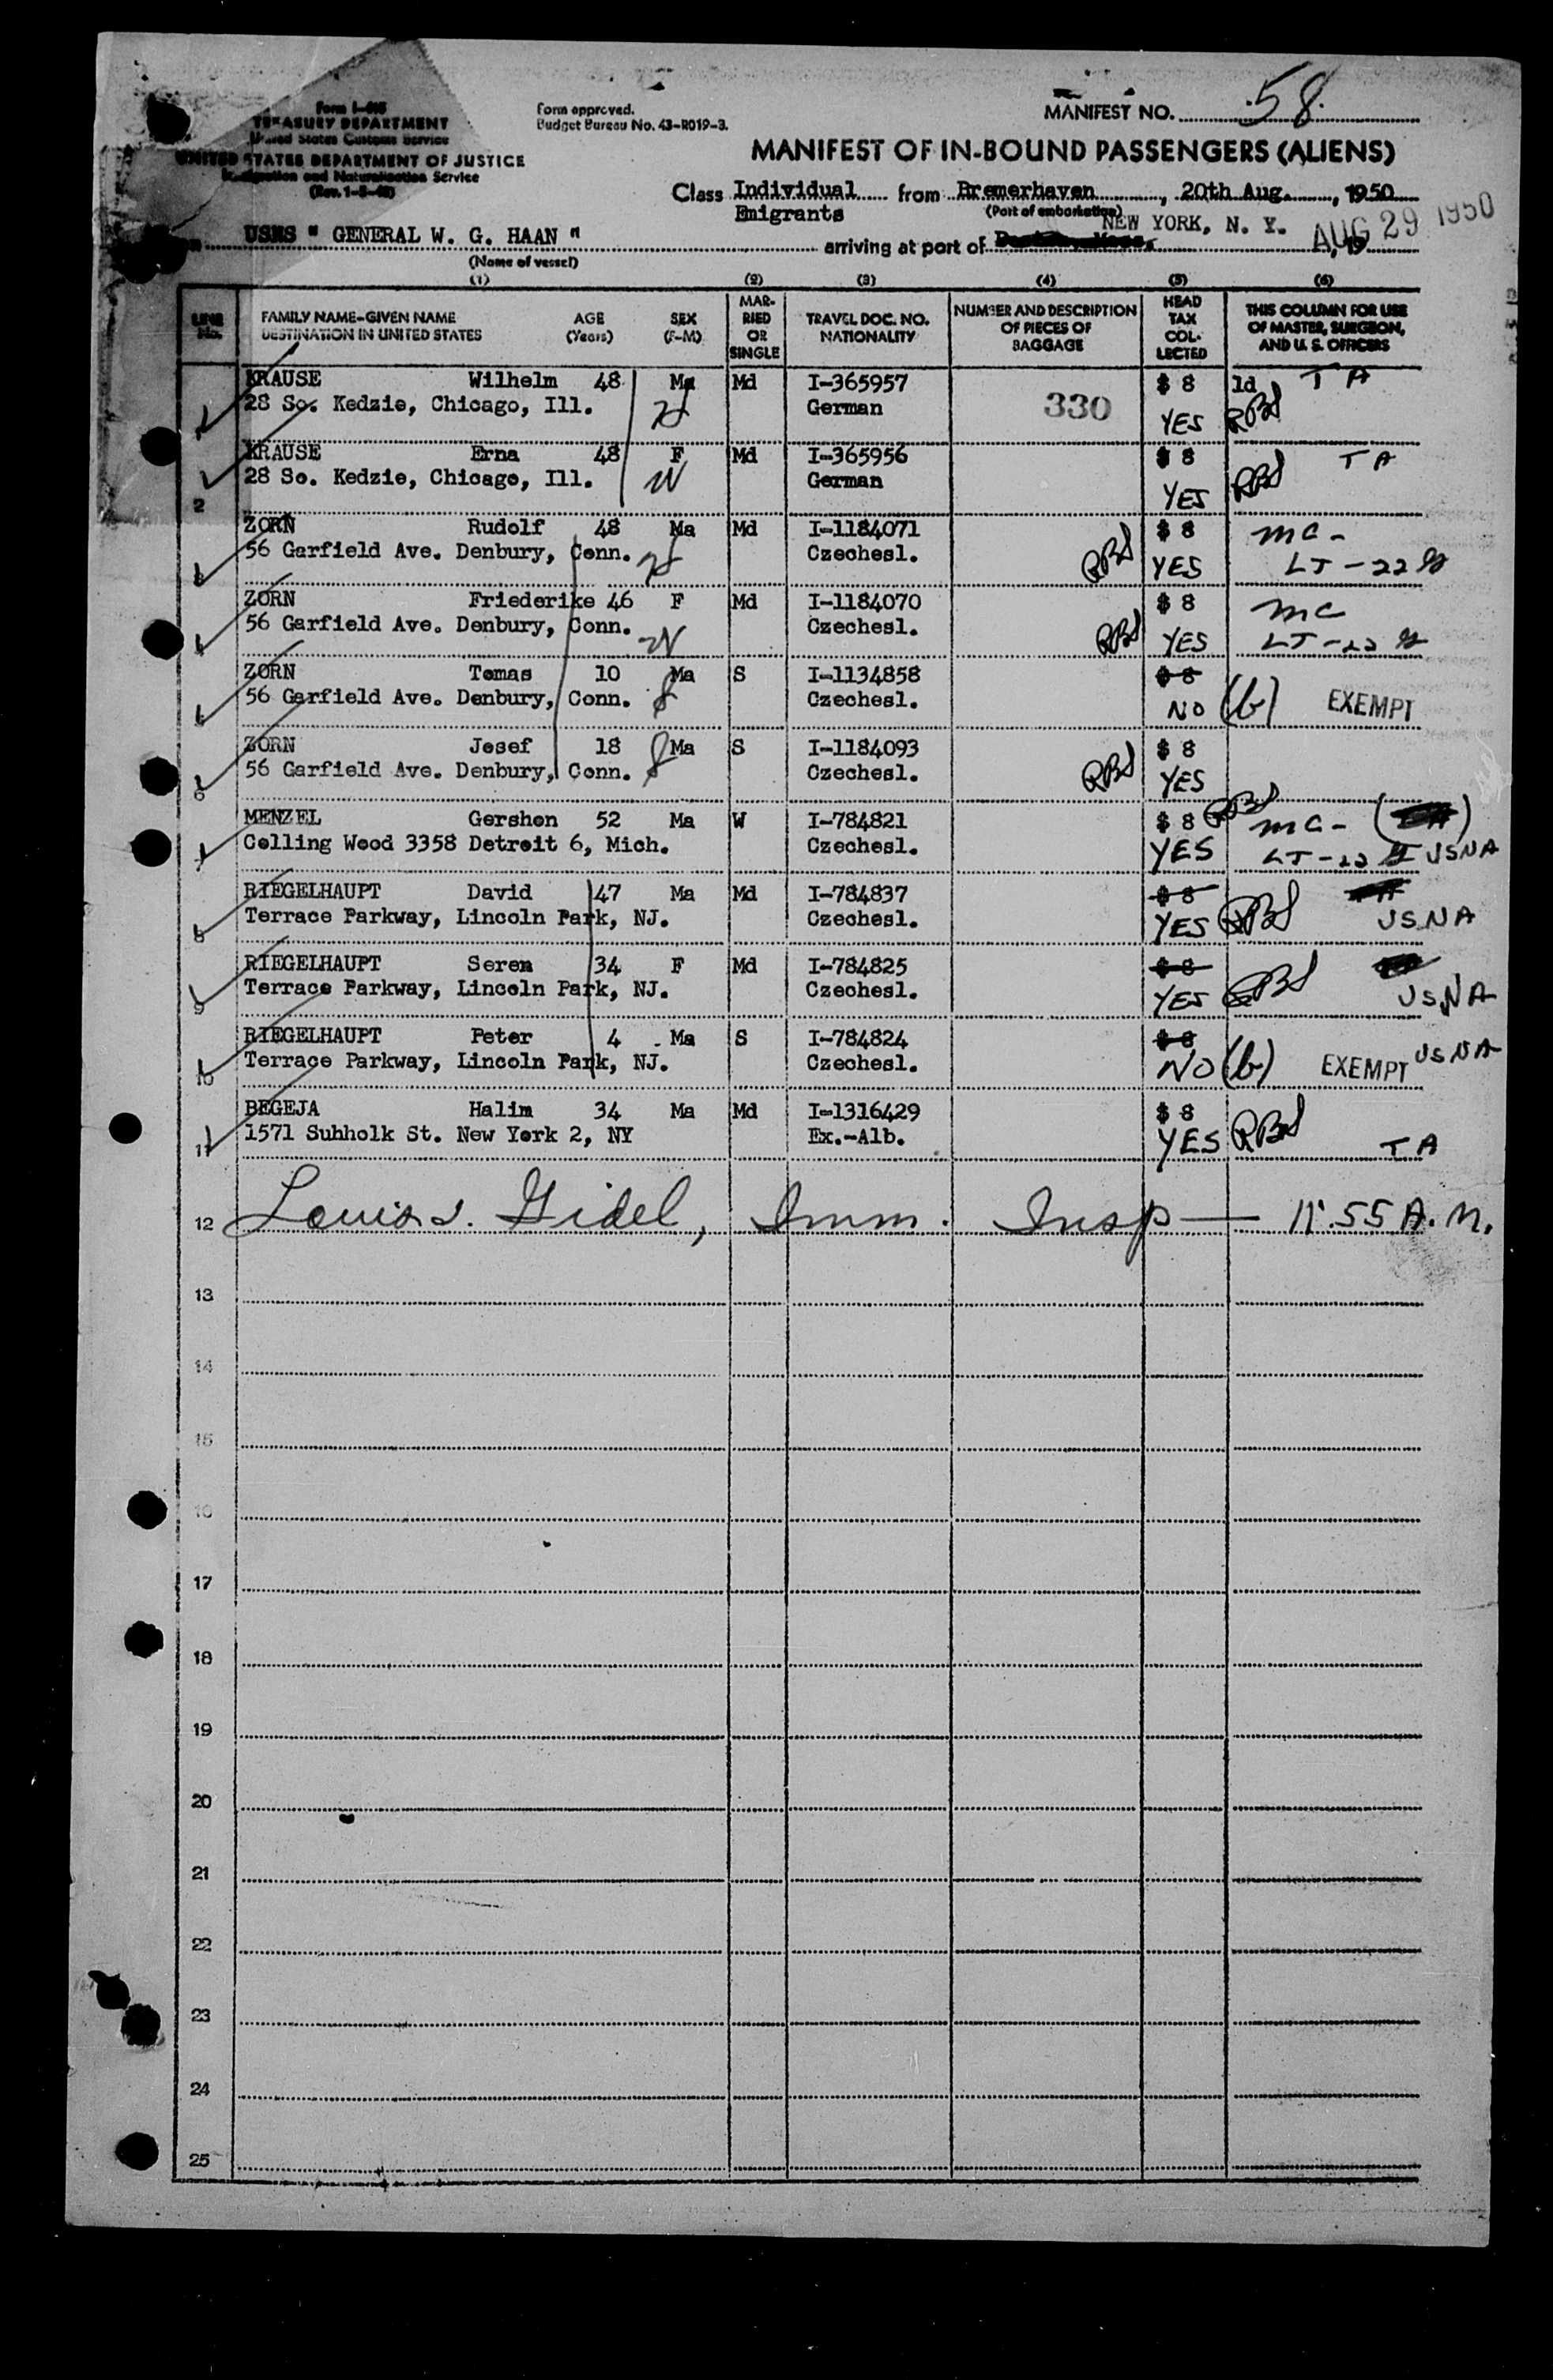 MANIFEST NO. 58
Form I-415
TREASURY DEPARTMENT
United States Customs Service
UNITED STATES DEPARTMENT OF JUSTICE
Immigration and Naturalization Service
Form approved.
Budget Bureau No. 43-R019-3.
MANIFEST OF IN-BOUND PASSENGERS (ALIENS)
Class Individual from Bremerhaven, 20th Aug., 1950
Emigrants (Port of embarkation)
NEW YORK, N. Y. AUG 29 1950
USNS " GENERAL W. G. HAAN " arriving at port of , 19
(Name of vessel)
(1) (2) (3) (4) (5) (6)
LINE No.
FAMILY NAME-GIVEN NAME AGE SEX
DESTINATION IN UNITED STATES (Years) (F-M)
MAR-RIED OR SINGLE
TRAVEL DOC. NO. NATIONALITY
NUMBER AND DESCRIPTION OF PIECES OF BAGGAGE
HEAD TAX COL-LECTED
THIS COLUMN FOR USE OF MASTER, SURGEON, AND U. S. OFFICERS
KRAUSE Wilhelm 48 Ma Md I-365957 $ 8 1d TA
28 So. Kedzie, Chicago, Ill. German 330 YES RBS
KRAUSE Erna 48 F Md I-365956 $ 8 TA
28 So. Kedzie, Chicago, Ill. W German YES RBS
2
ZORN Rudolf 48 Ma Md I-1184071 $ 8 MC -
56 Garfield Ave. Denbury, Conn. Czechesl. RBS YES LT-22
ZORN Friederike 46 F Md I-1184070 $ 8 MC
56 Garfield Ave. Denbury, Conn. W Czechesl. RBS YES LT-22
ZORN Tomas 10 Ma S I-1134858 $ 8
56 Garfield Ave. Denbury, Conn. Czechesl. NO (b) EXEMPT
ZORN Josef 18 Ma S I-1184093 $ 8
56 Garfield Ave. Denbury, Conn. Czechesl. RBS YES
6
MENZEL Gershon 52 Ma W I-784821 $ 8 RBS MC -
Colling Wood 3358 Detroit 6, Mich. Czechesl. YES LT-22 USNA
7
RIEGELHAUPT David 47 Ma Md I-784837 $ 8
Terrace Parkway, Lincoln Park, NJ. Czechesl. YES RBS USNA
8
RIEGELHAUPT Seren 34 F Md I-784825 $ 8
Terrace Parkway, Lincoln Park, NJ. Czechesl. YES RBS USNA
9
RIEGELHAUPT Peter 4 Ma S I-784824 $ 8
Terrace Parkway, Lincoln Park, NJ. Czechesl. NO (b) EXEMPT USNA
10
BEGEJA Halim 34 Ma Md I-1316429 $ 8
1571 Suhholk St. New York 2, NY Ex.-Alb. YES RBS TA
11
12 Louis J. Gidel, Imm. Insp — 11.55 A.M.
13
14
15
16
17
18
19
20
21
22
23
24
25